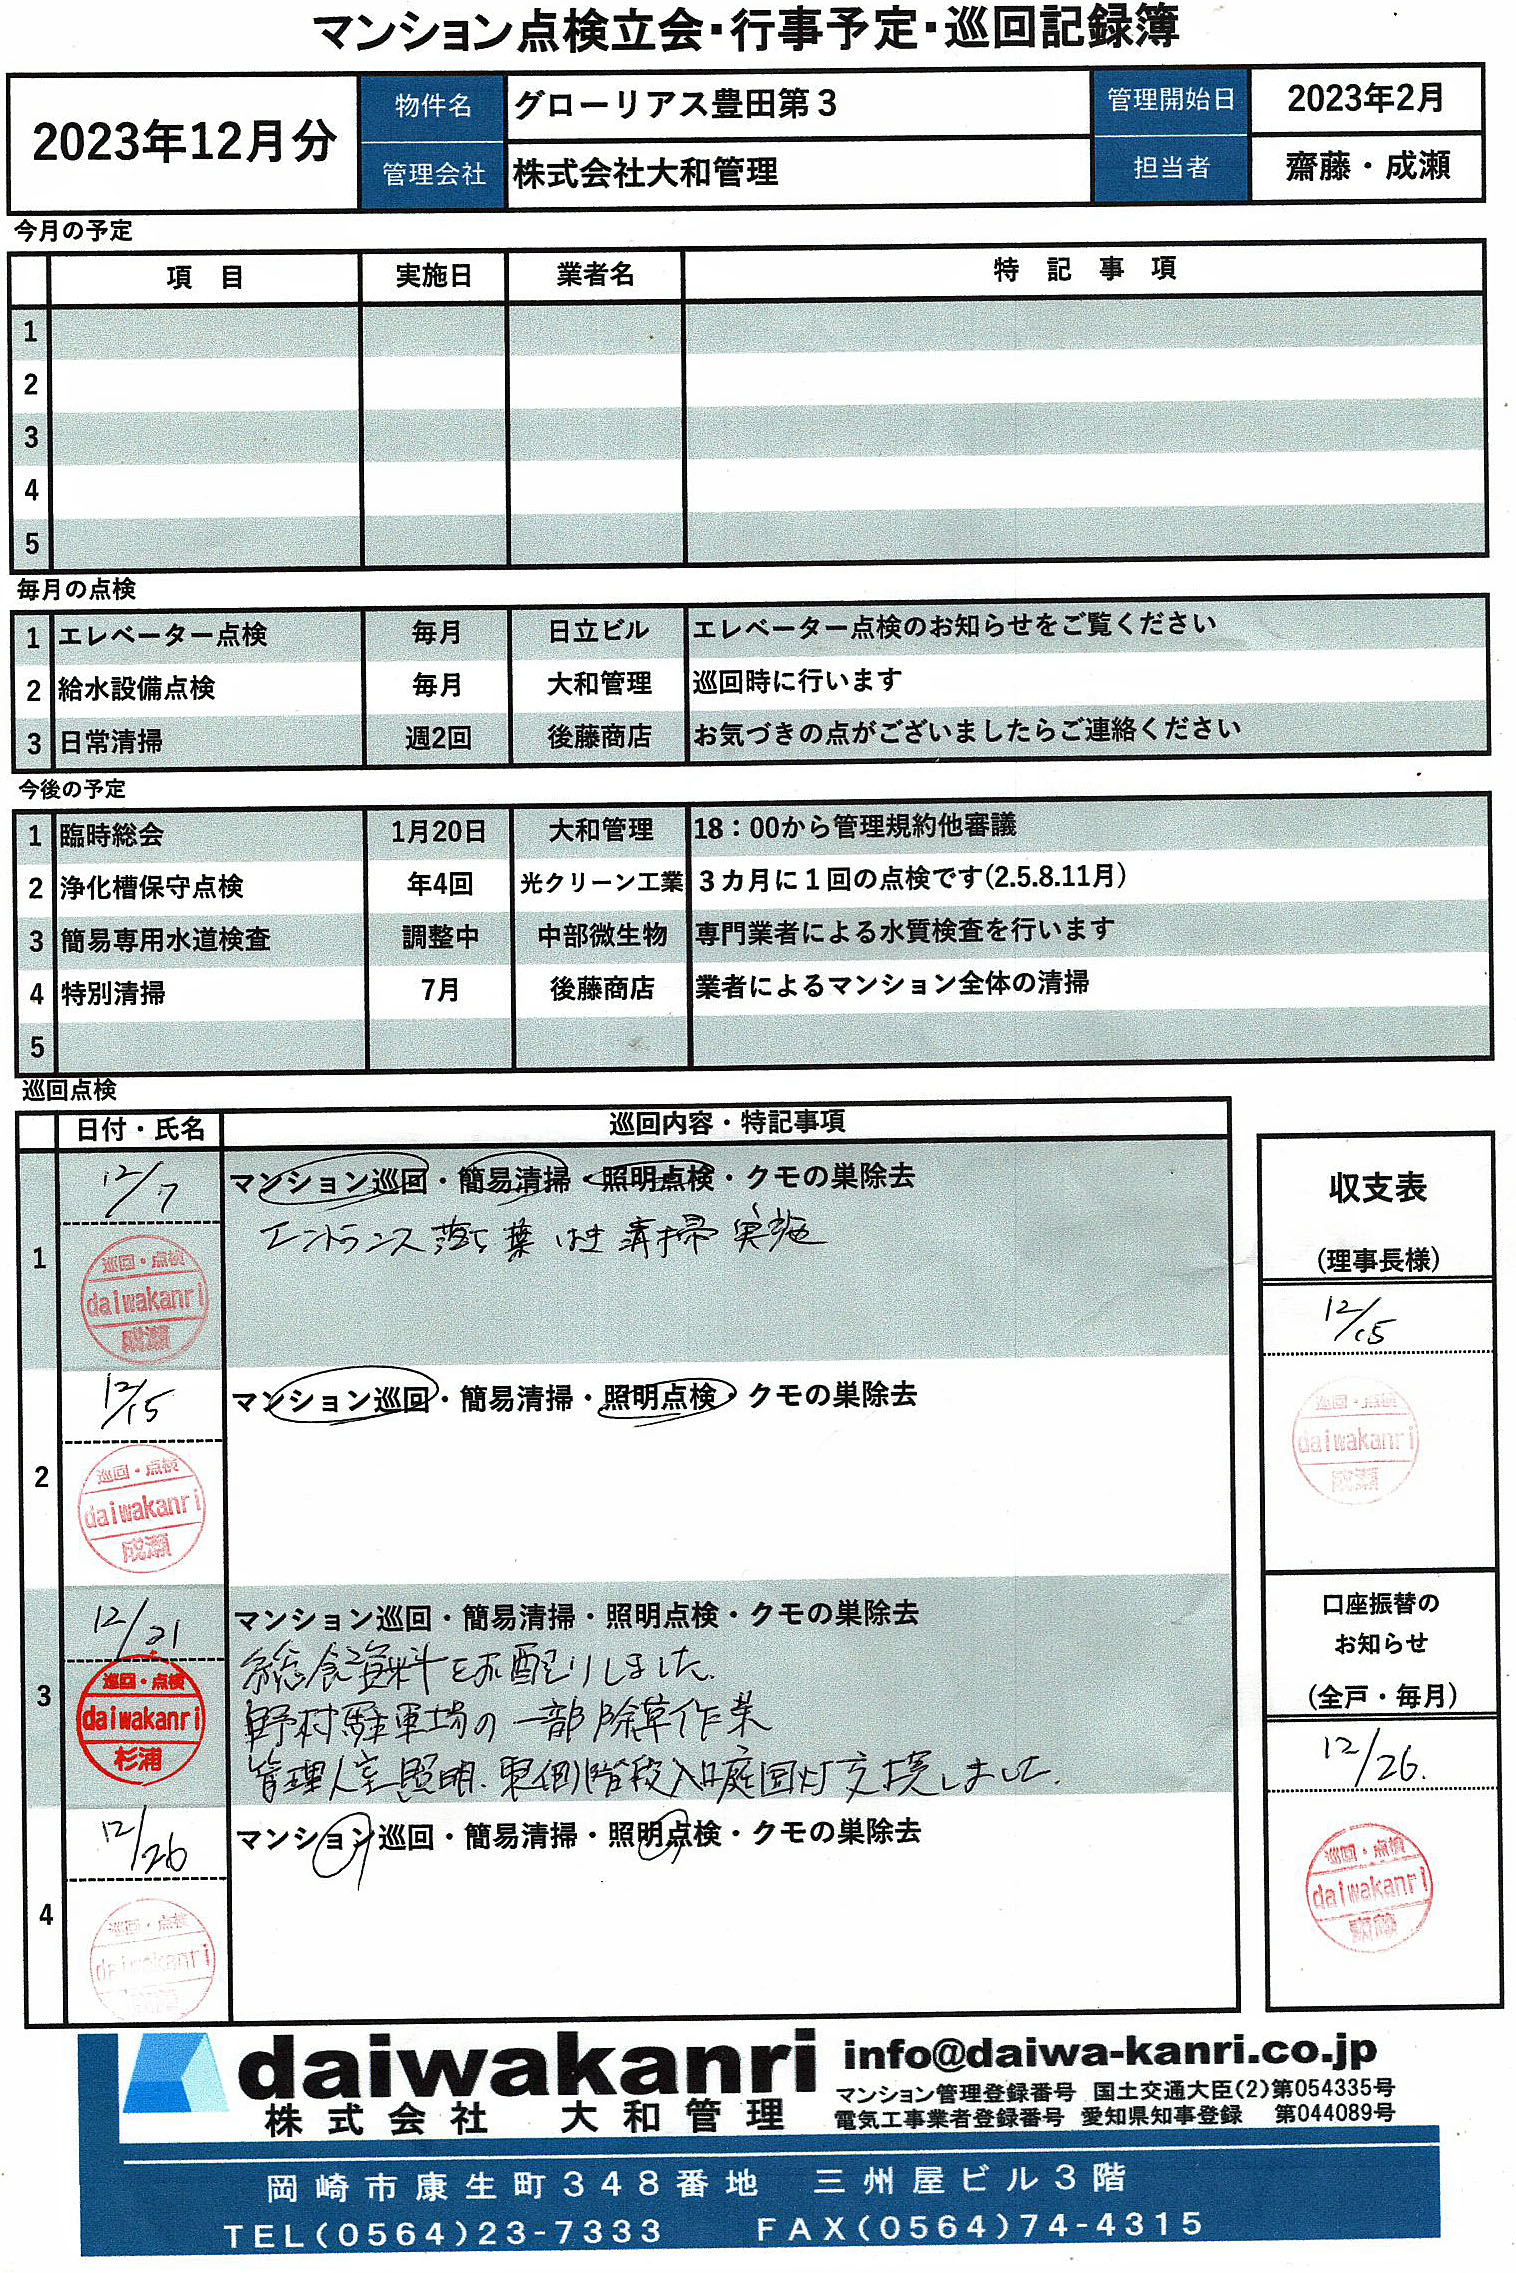 マンション点検立会・行事予定・巡回記録簿
2023年12月分 物件名 グローリアス豊田第3 管理開始日 2023年2月
管理会社 株式会社大和管理 担当者 齋藤・成瀬
今月の予定
項 目 実施日 業者名 特 記 事 項
1
2
3
4
5
毎月の点検
1 エレベーター点検 毎月 日立ビル エレベーター点検のお知らせをご覧ください
2 給水設備点検 毎月 大和管理 巡回時に行います
3 日常清掃 週2回 後藤商店 お気づきの点がございましたらご連絡ください
今後の予定
1 臨時総会 1月20日 大和管理 18：00から管理規約他審議
2 浄化槽保守点検 年4回 光クリーン工業 3カ月に1回の点検です(2.5.8.11月)
3 簡易専用水道検査 調整中 中部微生物 専門業者による水質検査を行います
4 特別清掃 7月 後藤商店 業者によるマンション全体の清掃
5
巡回点検
日付・氏名 巡回内容・特記事項
1 12/7 マンション巡回・簡易清掃・照明点検・クモの巣除去
エントランス落ち葉はき清掃実施
巡回・点検
daiwakanri
成瀬
2 12/15 マンション巡回・簡易清掃・照明点検・クモの巣除去
巡回・点検
daiwakanri
成瀬
3 12/21 マンション巡回・簡易清掃・照明点検・クモの巣除去
総会資料をお配りしました。
野村駐車場の一部除草作業
管理人室照明、東側階段入口庭園灯交換しました。
巡回・点検
daiwakanri
杉浦
4 12/26 マンション巡回・簡易清掃・照明点検・クモの巣除去
巡回・点検
daiwakanri
収支表
(理事長様)
12/15
巡回・点検
daiwakanri
成瀬
口座振替の
お知らせ
(全戸・毎月)
12/26.
巡回・点検
daiwakanri
齋藤
daiwakanri info@daiwa-kanri.co.jp
株式会社 大和管理
マンション管理登録番号 国土交通大臣(2)第054335号
電気工事業者登録番号 愛知県知事登録 第044089号
岡崎市康生町348番地 三州屋ビル3階
TEL(0564)23-7333 FAX(0564)74-4315